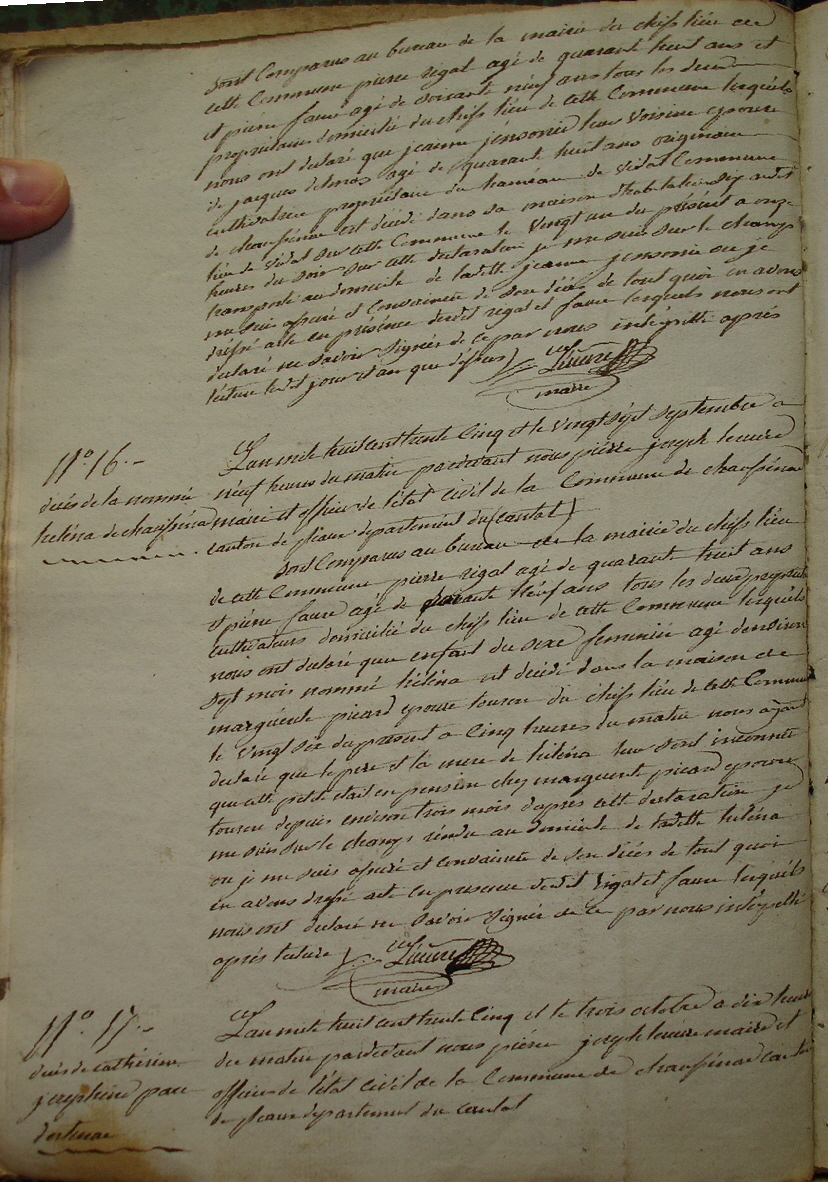 sont Comparus au bureau de la mairie du chef lieu de
cette Commune pierre rigal agé de quarant huit ans et
et pierre faure agé de soixante neuf ans tous les deux
propriétaires domicilié du chef lieu de cette Commune lesquels
nous ont declaré que jeanne jensonie leur voisine epouse
de jacques delmas agé de quarant huit ans originaire
cultivatrice propriétaire du hameau de vidal Commune
de chaussenac est décédé dans sa maison d'habitation
lieu de vidal sur cette Commune le vingt un du présent a onze
heures du soir sur cette declaration je me suis sur le champ
transporté au domicile de ladite jeanne jensonie ou je
me suis assuré et Convaincu de son décés de tout quoi en avons
dréssé acte en présence desdit rigal et faure lesquels nous ont
declaré ne savoir signer de ce par nous intérpéllé après
lecture ledit jour et an que dessus
maire
N° 16.-
décés de la nommé
heléna de chaussenac
L'an mile huit cent trente Cinq et le vingt sept septembre a
neuf heures du matin pardevant nous pierre joseph
maire et officier de l'état civil de la Commune de chaussenac
canton de pleaux departement du (cantal)
sont Comparus au bureau de la mairie du chef lieu
de cette Commune pierre rigal agé de quarant huit ans
et pierre faure agé de soixante neuf ans tous les deux
cultivateurs domicilié du chef lieu de cette Commune lesquels
nous ont declaré que enfant du sexe feminin agé d'environ
sept mois nommé heléna est décédé dans la maison de
marguerite picard epouse tourou du chef lieu de cette Commune
le vingt six du present a Cinq heures du matin nous ayant
declaré que le pere et la mere de heléna leur sont inconnus
que cette petite était en pension chez marguerite picard epouse
tourou depuis environ trois mois d'après cette declaration je
me suis sur le champs rendu au domicile de ladite heléna
ou je me suis assuré et convaincu de son décés de tout quoi
en avons dressé acte en presence desdit rigal et faure lesquels
nous ont declaré ne savoir signer de ce par nous intérpéllé
après lecture
maire
N° 17.-
décés de catherine
josephine
L'an mile huit cent trente Cinq et le trois octobre a dix heures
du matin pardevant nous pierre joseph maire et
officier de l'état civil de la Commune de chaussenac canton
de pleaux departement du cantal